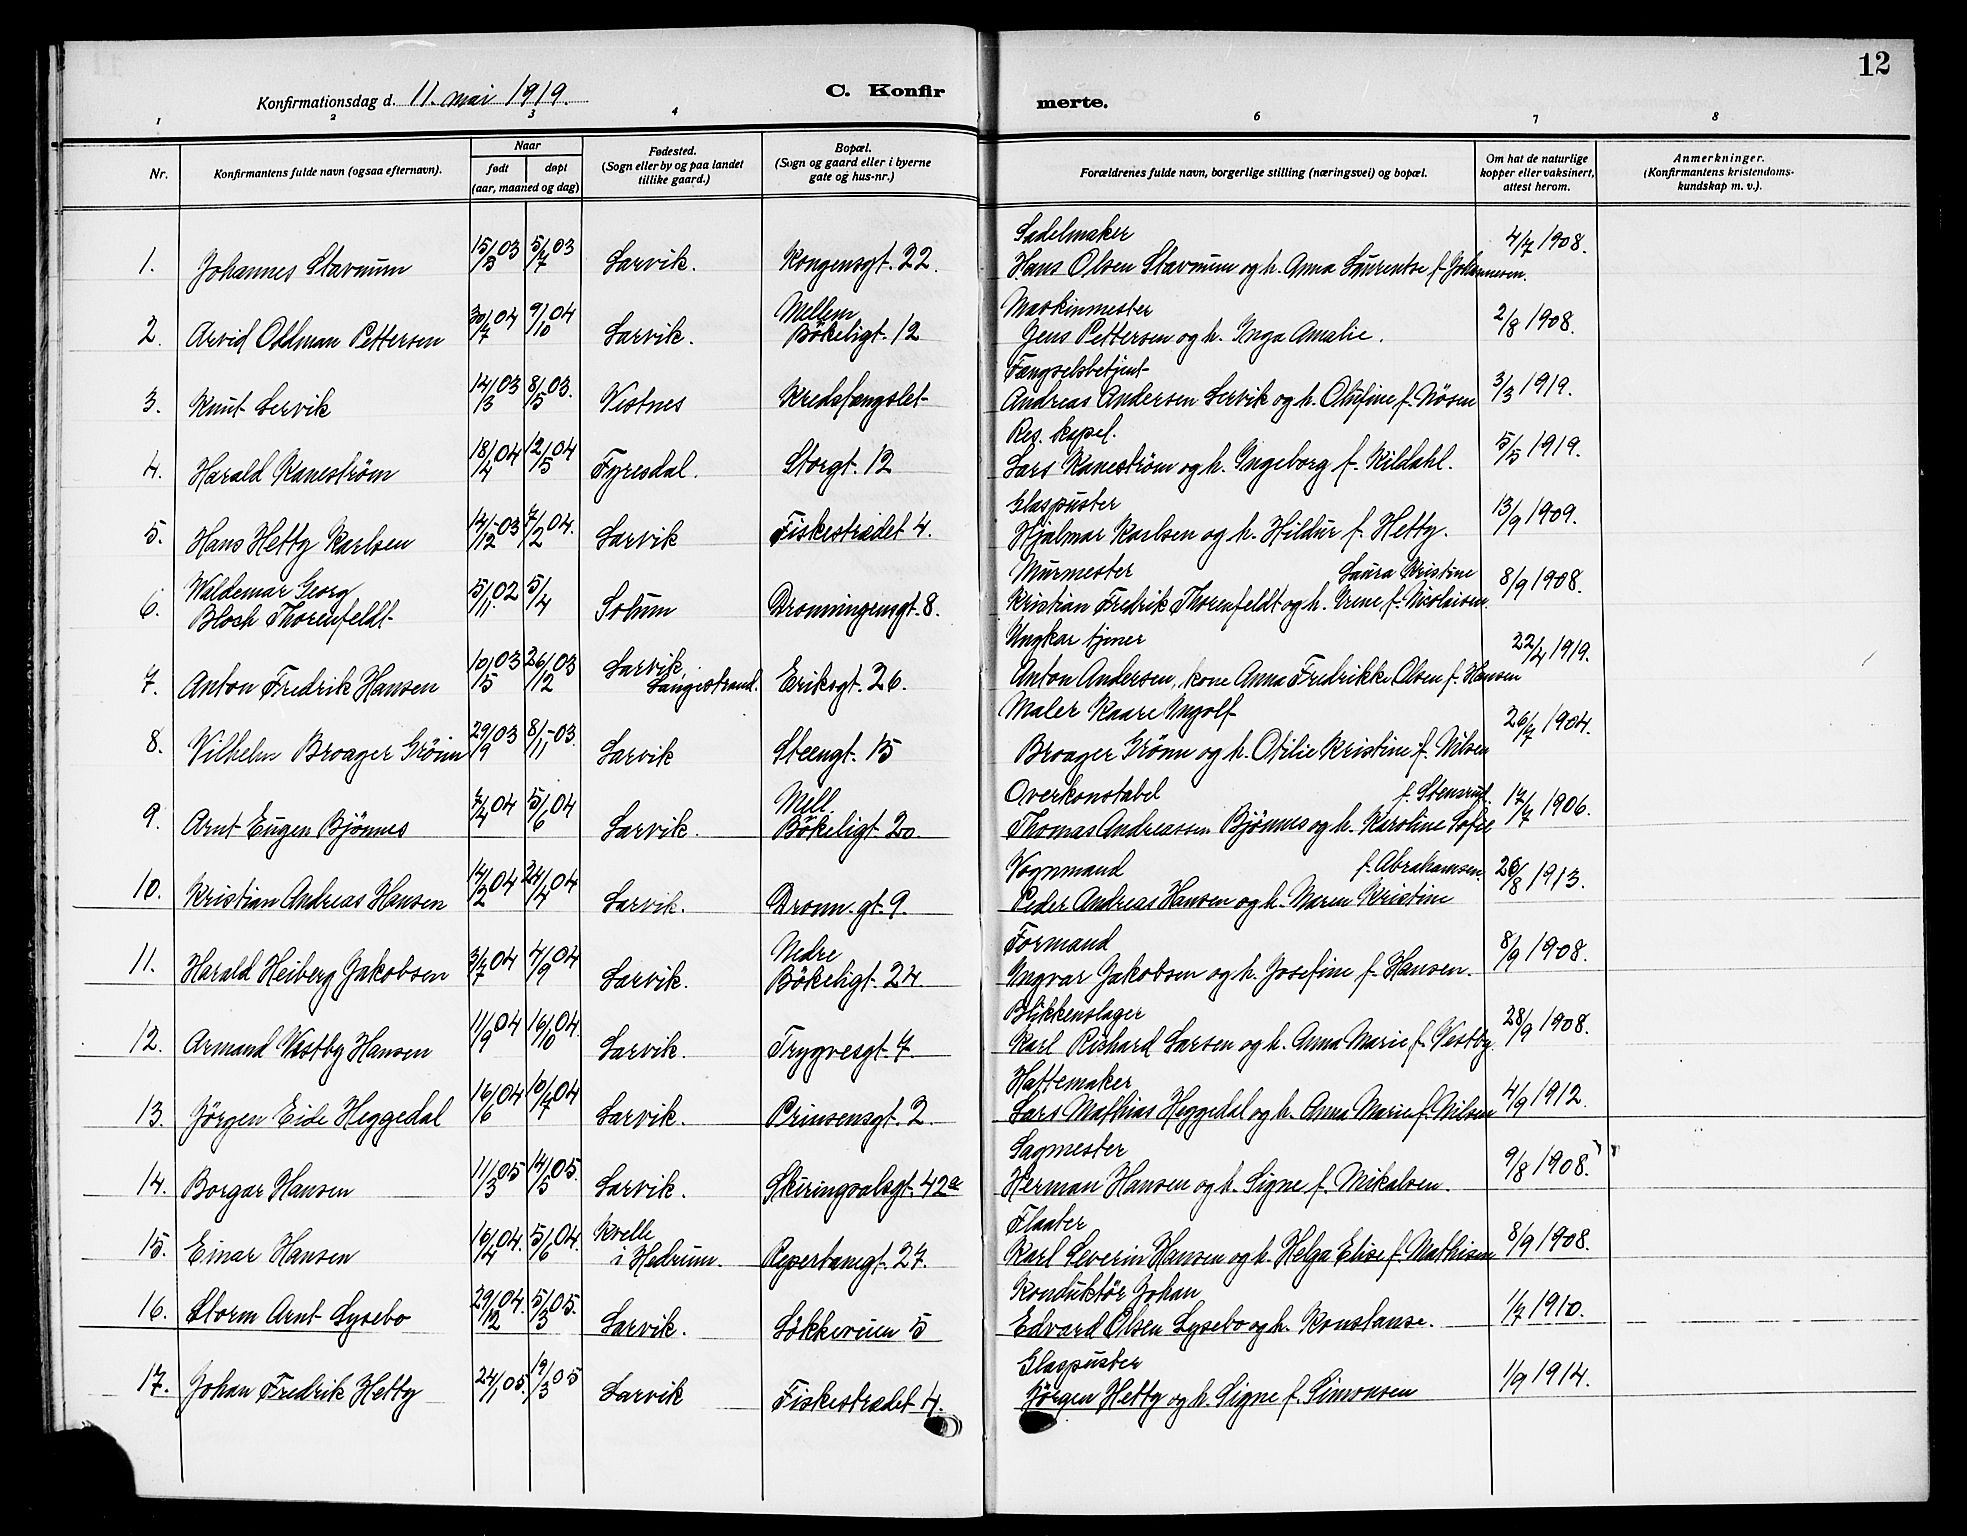 12
Konfirmationsdag d. 11. mai 1919.
C. Konfir
merte.
1 2 3 4 6 7 8
Nr.
Konfirmantens fulde navn (ogsaa efternavn).
Naar
født døpt
(aar, maaned og dag)
Fødested.
(Sogn eller by og paa landet
tillike gaard.)
Bopæl.
(Sogn og gaard eller i byerne
gate og hus-nr.)
Forældrenes fulde navn, borgerlige stilling (næringsvei) og bopæl.
Om hat de naturlige
kopper eller vaksinert,
attest herom.
Anmerkninger.
(Konfirmantens kristendoms-
kundskap m. v.).
Sadelmaker
1. Johannes Stavnum 15/3 03 5/7 03 Larvik. Kongensgt. 22. Hans Olsen Stavnum og h. Anna Laurentse f. Johannesen. 4/7 1908.
Mellem Maskinmester
2. Arvid Oddman Pettersen 30/7 04 9/10 04 Larvik. Bökeligt. 12 Jens Pettersen og h. Inga Amalie. 2/8 1908.
Fængselsbetjent
3. Knut Lervik 14/3 03 8/5 03. Vestnes Kredsfængslet Andreas Andersen Lervik og h. Olufine f. Nösen 3/3 1919.
Res. kapel.
4. Harald Kaneström 18/4 04 12/5 04 Fyresdal. Storgt. 12 Lars Kaneström og h. Ingeborg f. Kildahl. 5/5 1919.
Glaspuster
5. Hans Hetty Karlsen 14/12 03 7/2 04. Larvik Fiskestrædet 4. Hjalmar Karlsen og h. Hildur f. Hetty. 13/9 1909.
Waldemar Georg Murmester Laura Kristine
6. Bloch Thorenfeldt 5/11 02 5/4 Solum Dronningensgt. 8. Kristian Fredrik Thorenfeldt og h. Irene f. Nicolaisen. 8/9 1908.
Larvik, Ungkar tjener
7. Anton Fredrik Hansen 10/5 03 26/12 03 Langestrand. Eriksgt. 26. Anton Andersen, kone Anna Fredrikke Olsen f. Hansen 22/4 1919.
Maler Kaare Ingolf
8. Vilhelm Broager Grönn 29/9 03 8/11 03. Larvik Steengt. 15 Broager Grönn og h. Otilie Kristine f. Nilsen 26/7 1904.
Mell. Overkonstabel f. Stensrud.
9. Arnt Eugen Bjönnes 7/4 04 5/6 04 Larvik. Bökeligt. 20 Thomas Andreassen Bjönnes og h. Karoline Sofie 17/7 1906.
Vognmand f. Abrahamsen.
10. Kristian Andreas Hansen 14/2 04 24/4 04 Larvik. Dronn. gt. 9. Peder Andreas Hansen og h. Maren Kristine 26/8 1913.
Nedre Formand
11. Harald Heiberg Jakobsen 3/7 04 4/9 04 Larvik. Bökeligt. 24 Ingvar Jakobsen og h. Josefine f. Hansen. 8/9 1908.
Blikkenslager
12. Armand Vestby Hansen 11/9 04 16/10 04. Larvik. Trygvesgt. 7 Karl Richard Larsen og h. Anna Marie f. Vestby 28/9 1908.
Hattemaker
13. Jörgen Eide Heggedal 16/6 04 10/7 04 Larvik. Prinsensgt. 2. Lars Mathias Heggedal og h. Anna Marie f. Nilsen 4/9 1912.
Sagmester
14. Borgar Hansen 11/3 05 14/5 05. Larvik. Skiringsalsgt. 42a Herman Hansen og h. Signe f. Mikalsen. 9/8 1908.
Kvelle Flaater
15. Einar Hansen 16/4 04. 5/6 04. i Hedrum. Reperbanegt. 27. Karl Severin Hansen og h. Helga Elise f. Mathisen 8/9 1908.
Konduktör Johan
16. Storm Arnt Lysebo 29/12 04. 5/3 05. Larvik. Lökkeveien 5 Edvard Olsen Lysebo og h. Konstanse. 1/7 1910.
Glaspuster
17. Johan Fredrik Hetty 24/1 05. 19/3 05 Larvik Fiskestrædet 4. Jörgen Hetty og h. Signe f. Simonsen 1/9 1914.